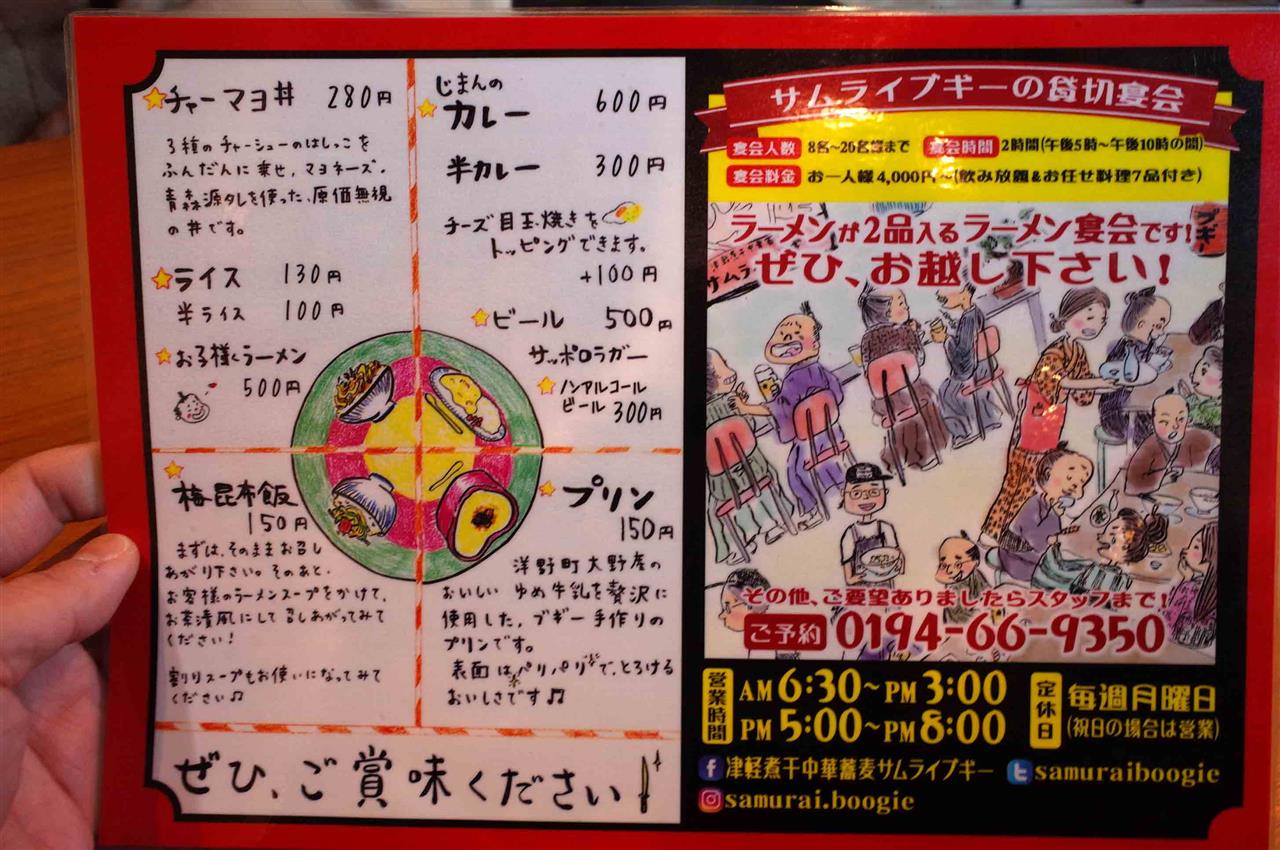 チャーマヨ丼 280円
3種のチャーシューのはしっこを
ふんだんに乗せ、マヨネーズ、
青森源タレを使った、原価無視
の丼です。
ライス 130円
半ライス 100円
お子様ラーメン
500円
じまんの
カレー 600円
半カレー 300円
チーズ目玉焼きを
トッピングできます。
+100円
ビール 500円
サッポロラガー
ノンアルコール
ビール 300円
梅昆布飯
150円
まずは、そのままお召し
あがり下さい。そのあと、
お客様のラーメンスープをかけて、
お茶漬風にして召しあがってみて
ください!
割りスープもお使いになってみて
ください♫
プリン
150円
洋野町大野産の
おいしい ゆめ牛乳を贅沢に
使用した、ブギー手作りの
プリンです。
表面はパリパリで、とろける
おいしさです♫
ぜひ、ご賞味ください
サムライブギーの貸切宴会
宴会人数 8名~26名様まで 宴会時間 2時間(午後5時~午後10時の間)
宴会料金 お一人様4,000円~(飲み放題&お任せ料理7品付き)
ラーメンが2品入るラーメン宴会です!
ぜひ、お越し下さい!
サムラ
ブギー
その他、ご要望ありましたらスタッフまで!
ご予約 0194-66-9350
営業時間 AM 6:30~PM 3:00
PM 5:00~PM 8:00
定休日 毎週月曜日
(祝日の場合は営業)
津軽煮干中華蕎麦サムライブギー samuraiboogie
samurai.boogie